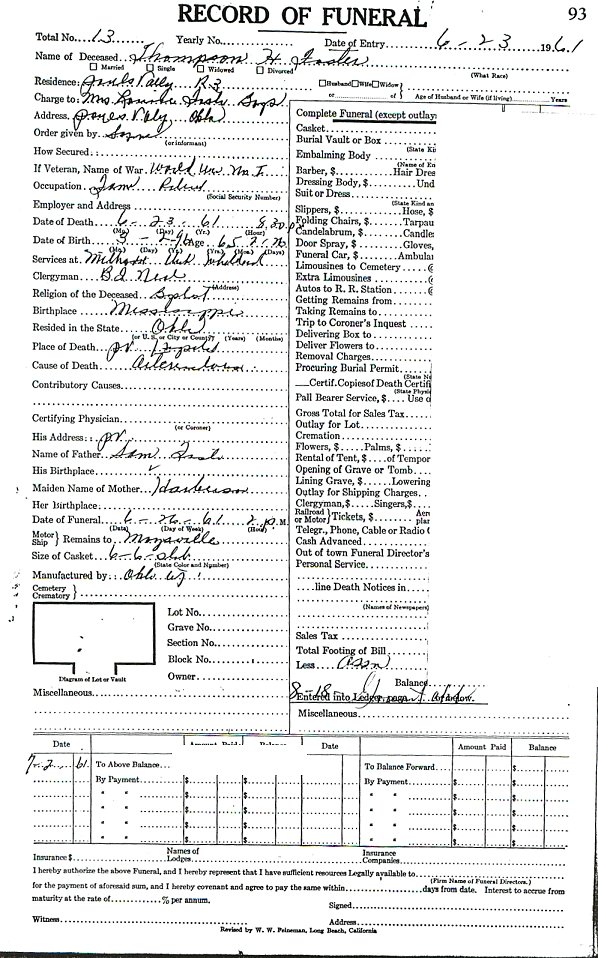 RECORD OF FUNERAL 93
Total No. 13 Yearly No. Date of Entry 6-23 1961
Name of Deceased Thompson H.
Married Single Widowed Divorced (What Race)
Residence: Pauls Valley R-3 Husband Wife Widow of
or of Age of Husband or Wife (if living) Years
Charge to: Mrs.
Address, Okla
Order given by Same
(or informant)
How Secured:
If Veteran, Name of War World War No. I
Occupation
(Social Security Number)
Employer and Address
Date of Death 6-23-61 8:30
(Mo.) (Day) (Yr.) (Hour)
Date of Birth 3 Age
(Mo.) (Day) (Yr.) (Yrs.) (Mos.) (Days)
Services at: Methodist
Clergyman
(Address)
Religion of the Deceased Baptist
Birthplace Mississippi
Resided in the State Okla
(or U. S. or City or County) (Years) (Months)
Place of Death PV Hospital
Cause of Death
Contributory Causes
Certifying Physician
(or Coroner)
His Address: PV
Name of Father Sam
His Birthplace
Maiden Name of Mother
Her Birthplace
Date of Funeral 6-26-61 2 P.M.
(Date) (Day of Week) (Hour)
Motor Ship } Remains to Maysville
Size of Casket 6-6
(State Color and Number)
Manufactured by: Okla
Cemetery Crematory }
Lot No.
Grave No.
Section No.
Block No.
Owner
Diagram of Lot or Vault
Miscellaneous
Complete Funeral (except outlay
Casket
Burial Vault or Box
(State Ki
Embalming Body
(Name of E
Barber, $ Hair Dres
Dressing Body, $ Und
Suit or Dress
(State Kind a
Slippers, $ Hose, $
Folding Chairs, $ Tarpau
Candelabrum, $ Candle
Door Spray, $ Gloves,
Funeral Car, $ Ambula
Limousines to Cemetery @
Extra Limousines @
Autos to R. R. Station @
Getting Remains from
Taking Remains to
Trip to Coroner's Inquest
Delivering Box to
Deliver Flowers to
Removal Charges
Procuring Burial Permit
(State N
Certif. Copies of Death Certifi
(State Physi
Pall Bearer Service, $ Use o
Gross Total for Sales Tax
Outlay for Lot
Cremation
Flowers, $ Palms, $
Rental of Tent, $ of Tempor
Opening of Grave or Tomb
Lining Grave, $ Lowering
Outlay for Shipping Charges
Clergyman, $ Singers, $
Railroad or Motor } Tickets, $ Aero plan
Telegr., Phone, Cable or Radio (
Cash Advanced
Out of town Funeral Director's
Personal Service
line Death Notices in
(Names of Newspapers)
Sales Tax
Total Footing of Bill
Less Assn
Balance
Entered into Ledger, page or below.
Miscellaneous
Date Amount Paid Balance Date Amount Paid Balance
7-2- 61 To Above Balance $ $ To Balance Forward $
By Payment $ $ By Payment $ $
" " $ $ " " $ $
" " $ $ " " $ $
" " $ $ " " $ $
" " $ $ " " $ $
Insurance $ Names of Lodges Insurance Companies
I hereby authorize the above Funeral, and I hereby represent that I have sufficient resources Legally available to
(Firm Name of Funeral Directors.)
for the payment of aforesaid sum, and I hereby covenant and agree to pay the same within days from date. Interest to accrue from
maturity at the rate of % per annum. Signed
Witness Address
Revised by W. W. Feineman, Long Beach, California